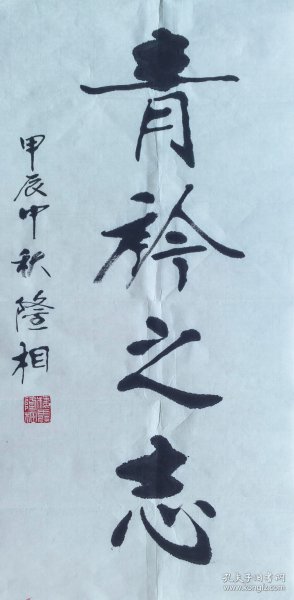 青衿之志
甲辰中秋隆相
孔夫子旧书网
www.kongfz.com